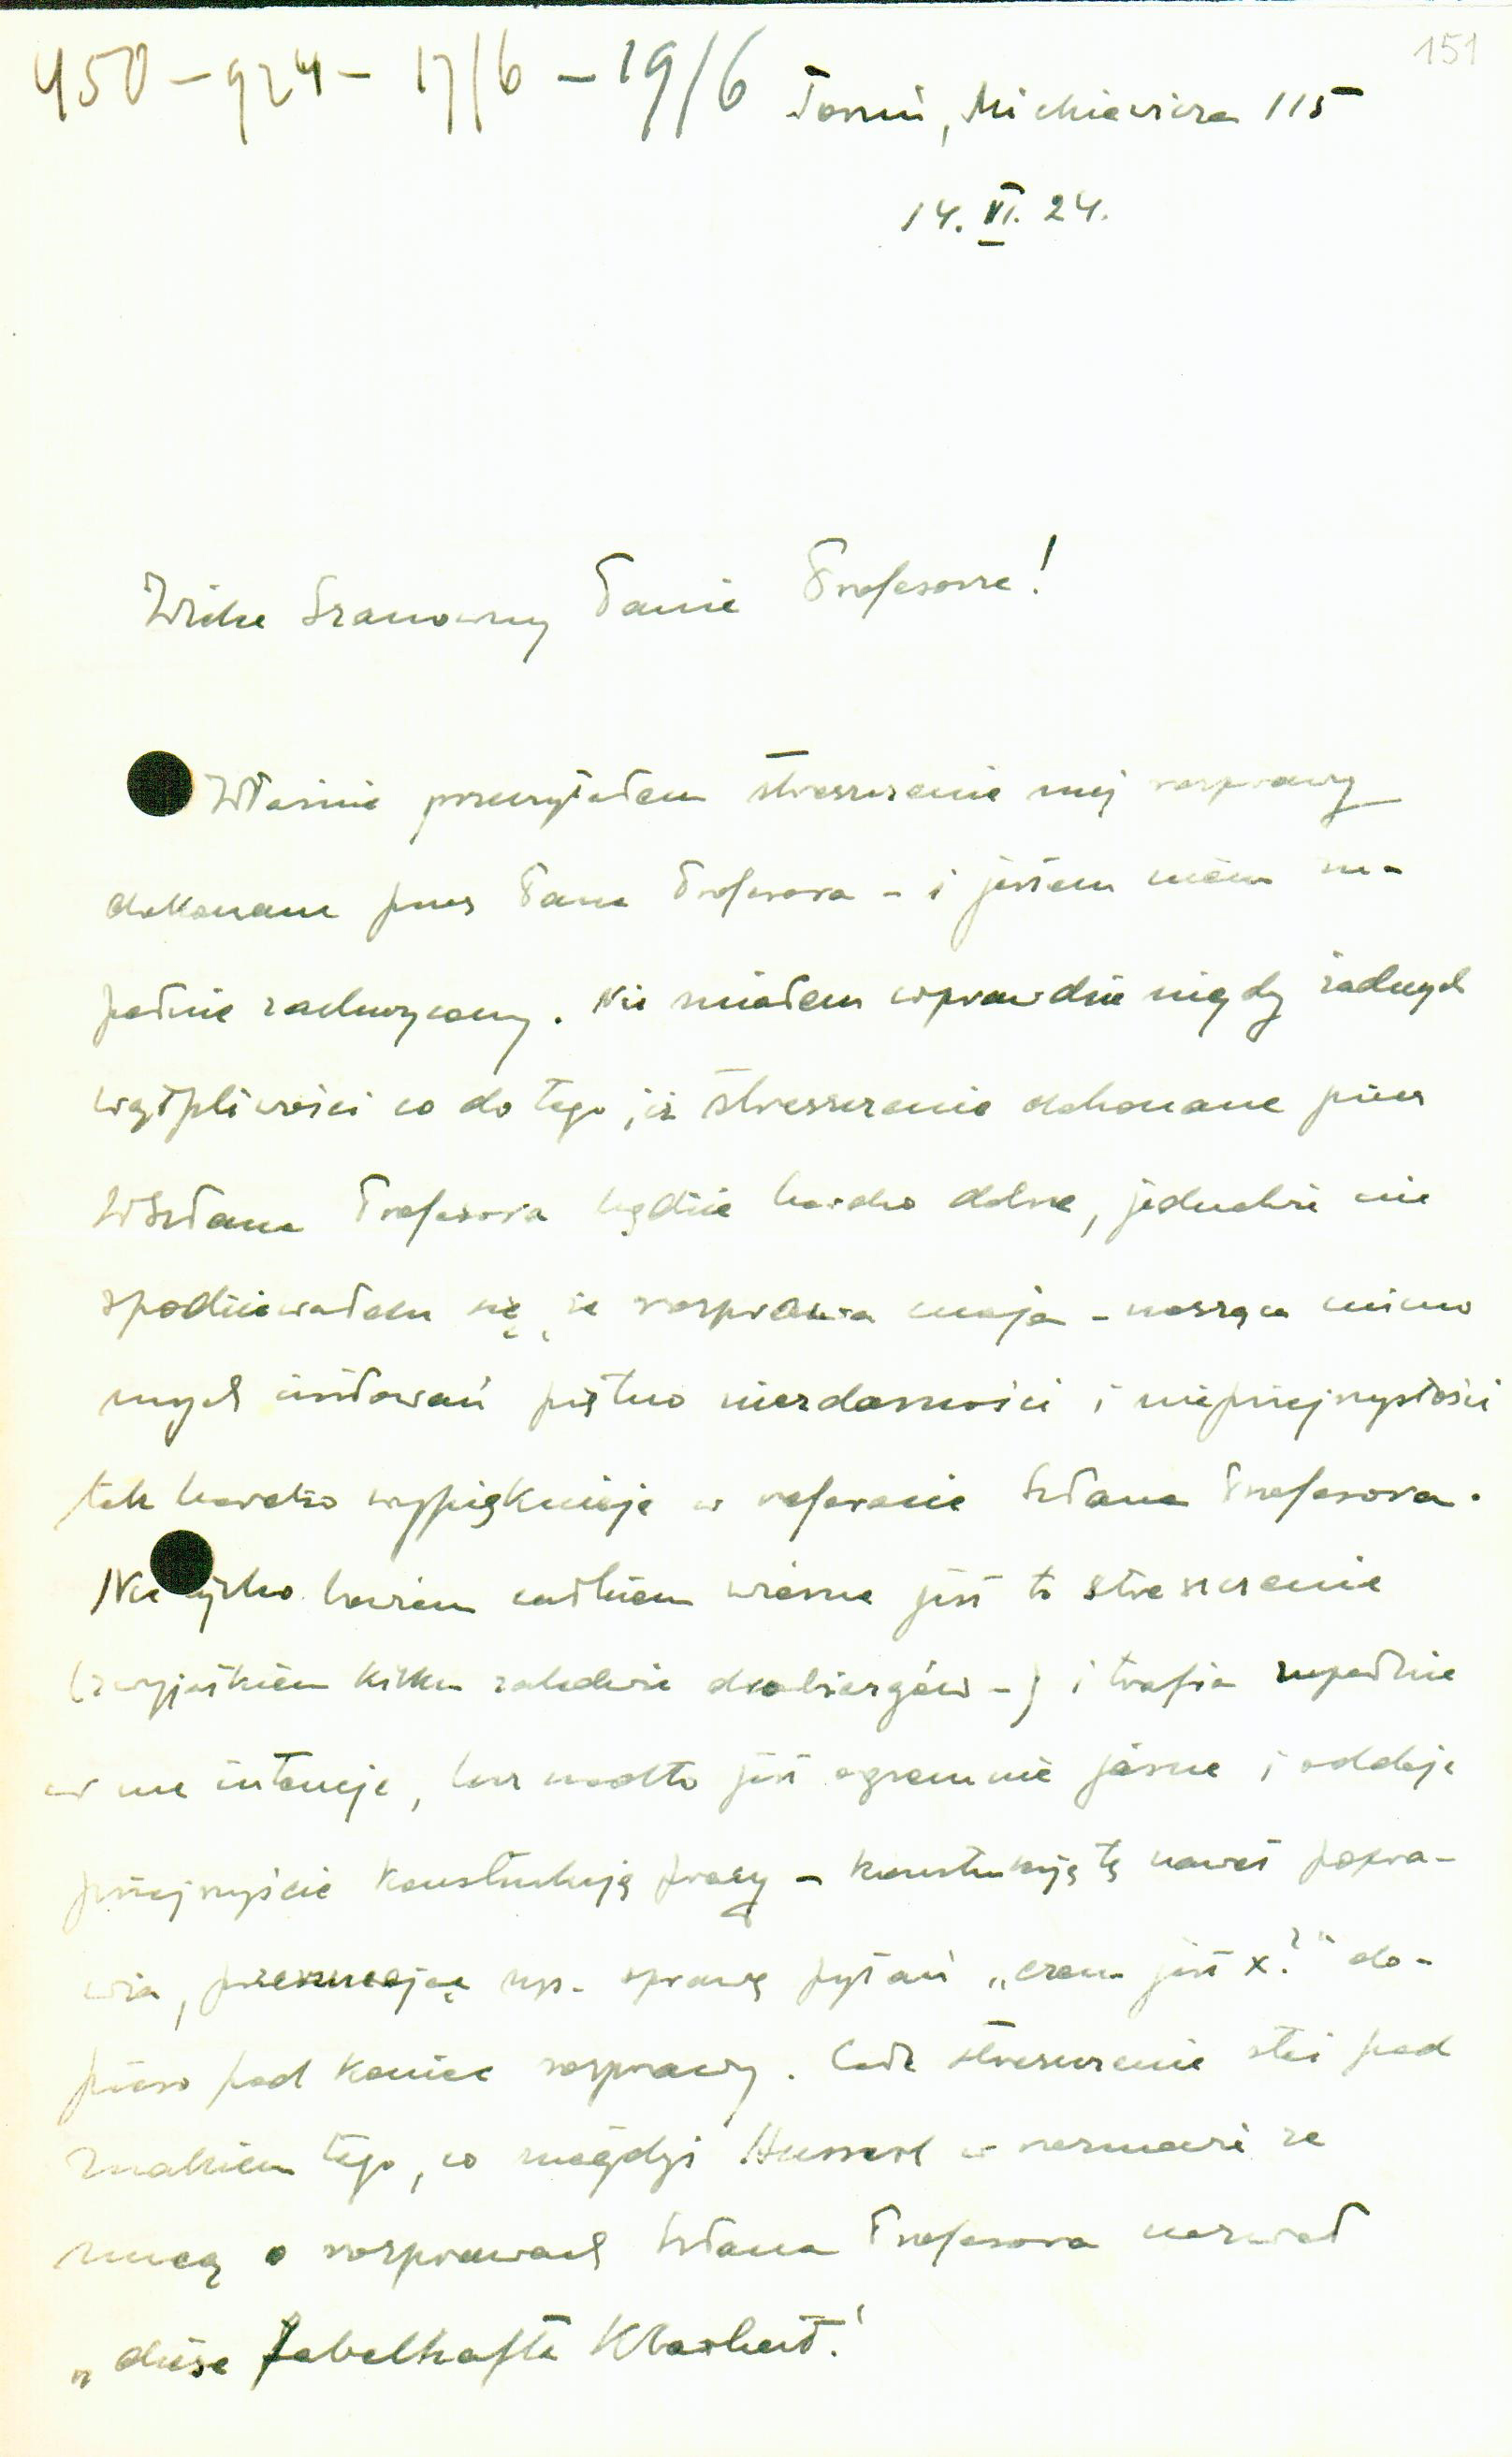 151
450-924- 17/6 - 19/6
Toruń, Mickiewicza 115
14. VI. 24.
Wielce Szanowny Panie Profesorze!
Właśnie przeczytałem streszczenie mej rozprawy
dokonane przez Pana Profesora - i jestem niem zu-
pełnie zachwycony. Nie miałem wprawdzie nigdy żadnych
wątpliwości co do tego, iż streszczenie dokonane przez
WSzPana Profesora będzie bardzo dobre, jednakże nie
spodziewałem się, że rozprawa moja - nosząca mimo
mych usiłowań piętno niezdarności i nieprzejrzystości
tak bardzo wypięknieje w referacie SzPana Profesora.
Nie tylko bowiem całkiem wierne jest to streszczenie
(z wyjątkiem kilku zaledwie drobiazgów -) i trafia zupełnie
w me intencje, lecz nadto jest ogromnie jasne i oddaje
przejrzyście konstrukcję pracy - konstrukcję tę nawet popra-
wia, przesuwając np. sprawę pytań „czem jest x?" do-
piero pod koniec rozprawy. Całe streszczenie stoi pod
znakiem tego, co niegdyś Husserl w rozmowie ze
mną o rozprawach SzPana Profesora nazwał
„diese fabelhafte Klarheit!